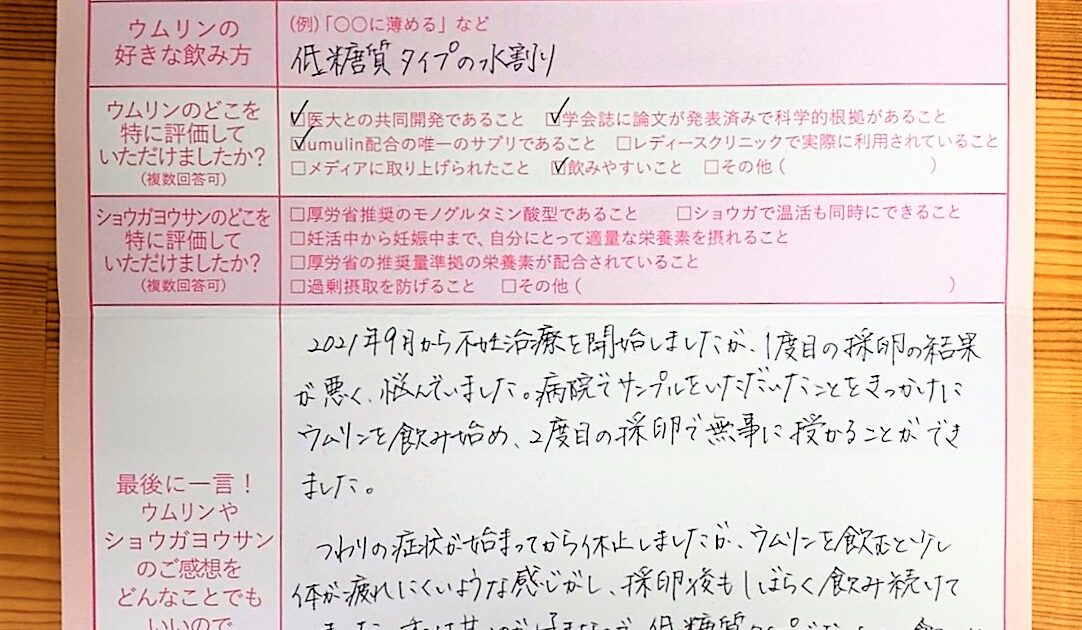 ウムリンの
好きな飲み方
(例)「〇〇に薄める」など
低糖質タイプの水割り
ウムリンのどこを
特に評価して
いただけましたか?
(複数回答可)
☑医大との共同開発であること ☑学会誌に論文が発表済みで科学的根拠があること
☑umulin配合の唯一のサプリであること □レディースクリニックで実際に利用されていること
□メディアに取り上げられたこと ☑飲みやすいこと □その他( )
ショウガヨウサンのどこを
特に評価して
いただけましたか?
(複数回答可)
□厚労省推奨のモノグルタミン酸型であること □ショウガで温活も同時にできること
□妊活中から妊娠中まで、自分にとって適量な栄養素を摂れること
□厚労省の推奨量準拠の栄養素が配合されていること
□過剰摂取を防げること □その他( )
最後に一言!
ウムリンや
ショウガヨウサン
のご感想を
どんなことでも
いいので
2021年9月から不妊治療を開始しましたが、1度目の採卵の結果
が悪く、悩んでいました。病院でサンプルをいただいたことをきっかけに
ウムリンを飲み始め、2度目の採卵で無事に授かることができ
ました。
つわりの症状が始まってから休止しましたが、ウムリンを飲むと少し
体が疲れにくいような感じがし、採卵後もしばらく飲み続けて